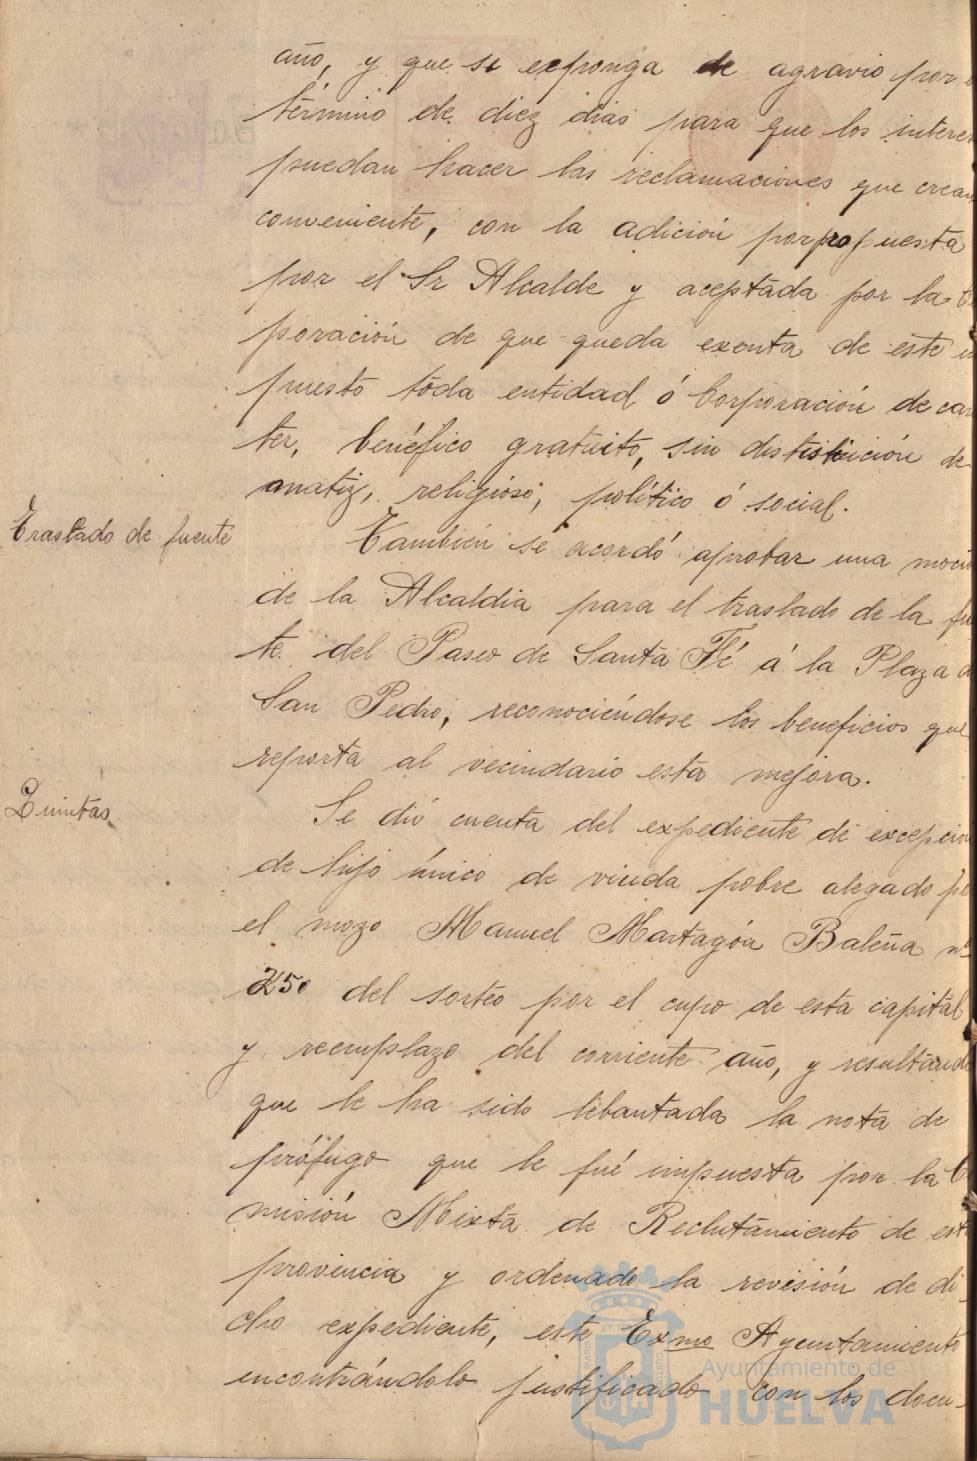 año, y que se exponga de agravio por e
término de diez dias para que los interes
puedan hacer las reclamaciones que crean
conveniente, con la adición porpropuesta
por el Sr Alcalde y aceptada por la C
poración de que queda exenta de este im
puesto toda entidad ó Corporación de car
ter, benéfico gratuito, sin distinción de
matiz, religioso, político ó social.
Traslado de fuente
Tambien se acordó aprobar una moció
de la Alcaldia para el traslado de la fu
te del Paseo de Santa Fé á la Plaza d
San Pedro, reconociéndose los beneficios que
reporta al vecindario esta mejora.
Quintas
Se dió cuenta del expediente de excepción
de hijo único de viuda pobre alegado po
el mozo Manuel Martagón Baleña nº
250 del sorteo por el cupo de esta capital
y reemplazo del corriente año, y resultando
que le ha sido lebantada la nota de
prófugo que le fué impuesta por la Co
misión Mixta de Reclutamiento de esta
provincia y ordenado la revisión de di-
cho expediente, este Exmo Ayuntamiento
encontrándolo justificado con los docu-
Ayuntamiento de
HUELVA